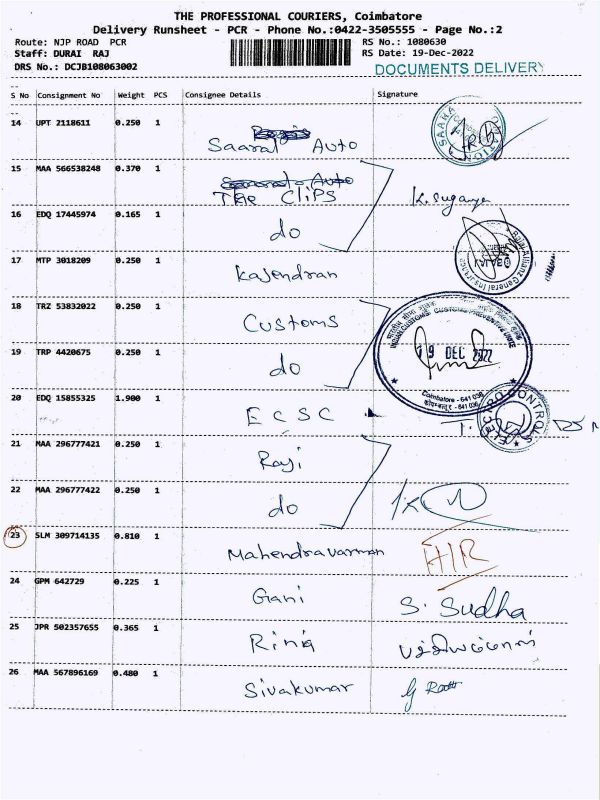 THE PROFESSIONAL COURIERS, Coimbatore
Delivery Runsheet - PCR - Phone No.:0422-3505555 - Page No.:2
Route: NJP ROAD PCR
RS No.: 1080630
Staff: DURAI RAJ
RS Date: 19-Dec-2022
DRS No.: DCJB108063002
DOCUMENTS DELIVERY
S No Consignment No Weight PCS Consignee Details Signature
14 UPT 2118611 0.250 1
Saarat Auto
15 MAA 566538248 0.370 1
Saarat Auto
The Clips
K. Suganya
16 EDQ 17445974 0.165 1
do
17 MTP 3018209 0.250 1
Bajaj Allianz General Insurance
Rajendran
18 TRZ 53832022 0.250 1
INDIAN CUSTOMS, CUSTOMS PREVENTIVE UNIT
Customs
19 DEC 2022
19 TRP 4420675 0.250 1
do
Coimbatore - 641 036
20 EDQ 15855325 1.900 1
E C S C
21 MAA 296777421 0.250 1
Raji
22 MAA 296777422 0.250 1
do
23 SLM 309714135 0.810 1
Mahendravarman
24 GPM 642729 0.225 1
Gani
S. Sudha
25 JPR 502357655 0.365 1
26 MAA 567896169 0.480 1
Sivakumar